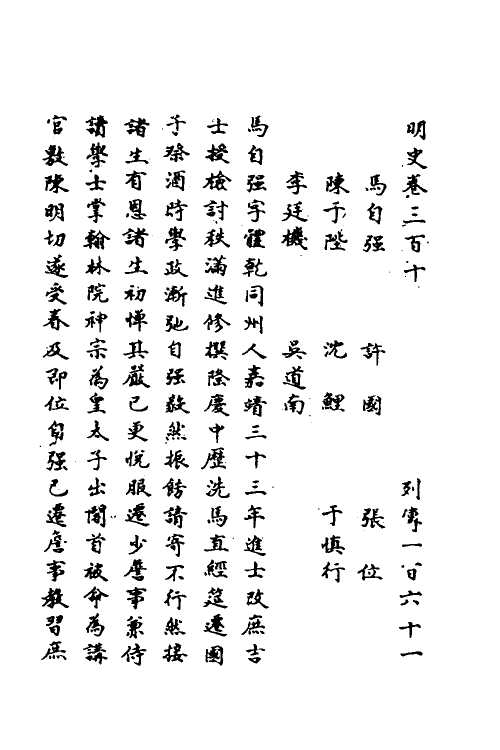 明史卷三百十 列傳一百六十一
馬自强 許國 張位
陳于陛 沈鯉 于慎行
李廷機 吳道南
馬自强字體乾同州人嘉靖三十三年進士改庶吉
士授檢討秩滿進修撰隆慶中歷洗馬直經筵遷國
子祭酒時學政漸弛自强毅然振飭請寄不行然接
諸生有恩諸生初憚其嚴已更悅服遷少詹事兼侍
讀學士掌翰林院神宗為皇太子出閣首被命為講
官敷陳明切遂受眷及即位自强已遷詹事教習庶